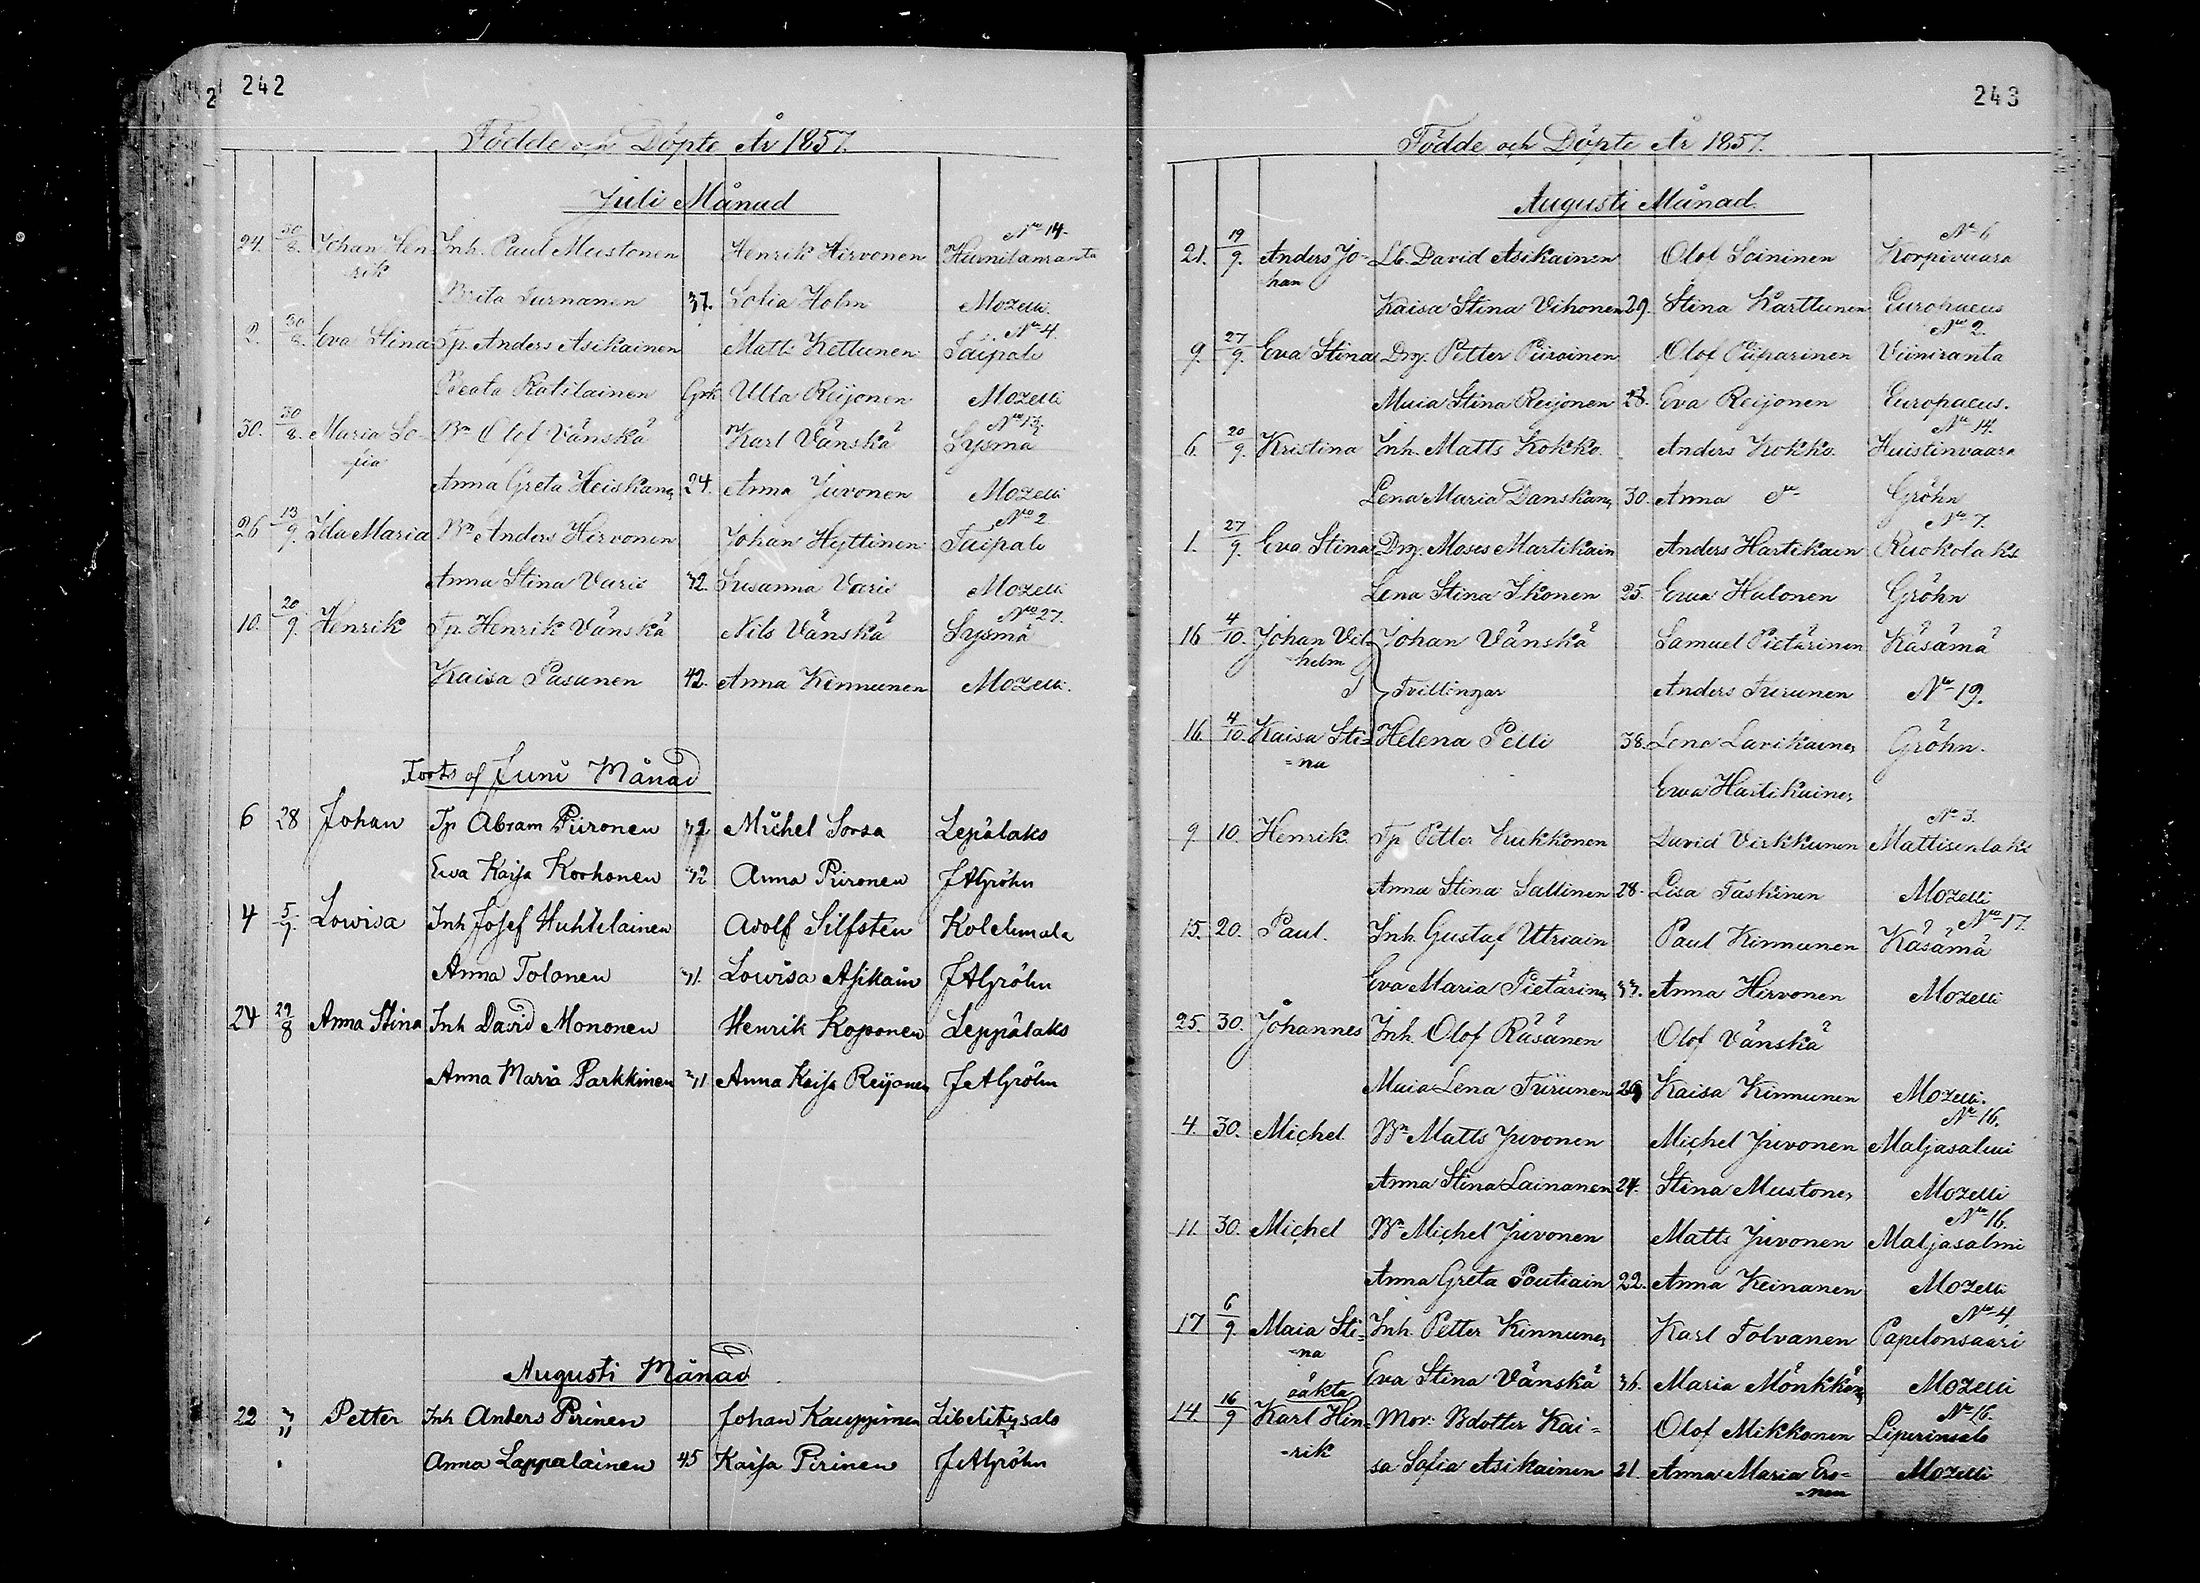 242
Födde och Döpte År 1857.
Juli Månad
24. 30/8. Johan Hen Inh. Paul Mustonen Henrik Hirvonen No 14. Harnilanranta
rik Brita Turnanen 37. Sofia Holm Mozelli.
2. 30/8. Eva Stina Tp. Anders Asikainen Matti Kettunen No 4. Taipale
Beata Ratilainen Gpk Ulla Reijonen Mozelli
30. 30/8. Maria So- Bn Olof Vänskä Karl Vänskä No 13. Sysmä
fia Anna Greta Heiskan. 24. Anna Juvonen Mozelli
26 13/9. Ida Maria Bn Anders Hirvonen Johan Hyttinen No 2 Taipale
Anna Stina Varis 32. Susanna Varis Mozelli
10. 20/9. Henrik Tp. Henrik Vänskä Nils Vänskä No 27. Sysmä
Kaisa Pasanen 42. Anna Kinnunen Mozelli.
Forts af Juni Månad
6 28 Johan Tp Abram Piironen Michel Sorsa Lepälaks
Ewa Kaisa Korhonen 32 Anna Piironen JAGröhn
4 5/7. Lowisa Inh Josef Huhtelainen Adolf Silfsten Kolehmala
Anna Tolonen 31. Lowisa Asikain JAGröhn
24 29/8 Anna Stina Inh David Mononen Henrik Koponen Leppälaks
Anna Maria Parkkinen 31 Anna Kaisa Reijonen JAGröhn
Augusti Månad
22 Petter Inh Anders Pirinen Johan Kauppinen Libelitysalo
Anna Lappalainen 45 Kaisa Pirinen JAGröhn
243
Födde och Döpte År 1857.
Augusti Månad.
21. 19/9. Anders Jo- Lb. David Asikainen Olof Soininen No 6 Korpivaara
han Kaisa Stina Vihonen 29. Stina Karttunen Europaeus
9. 27/9. Eva Stina Drg. Petter Piiroinen Olof Piiparinen No 2. Viiniranta
Maia Stina Reijonen 28. Eva Reijonen Europaeus.
6. 20/9. Kristina Inh. Matts Kokko. Anders Kokko. No 14. Huistinvaara
Lena Maria Danskan. 30. Anna do Gröhn
1. 27/9. Eva Stina Drg. Moses Martikain Anders Hartikain No 7. Ruokolaks
Lena Stina Ikonen 25. Ewa Halonen Gröhn
16 4/10. Johan Vil- Johan Vänskä Samuel Pietärinen Käsämä
helm Tvillingar Anders Turunen No 19.
16. 4/10. Kaisa Sti= Helena Pelli 38. Lena Lavikainen Gröhn.
=na Ewa Hartikainen
9. 10. Henrik. Tp Petter Sukkonen David Virkkunen No 3. Mattisenlaks
Anna Stina Sallinen 28. Lisa Taskinen Mozelli
15. 20. Paul. Inh. Gustaf Utriain Paul Kinnunen No 17. Käsämä
Eva Maria Pietärinen 33. Anna Hirvonen Mozelli
25. 30. Johannes Inh. Olof Räsänen Olof Vänskä
Maia Lena Turunen 26 Kaisa Kinnunen Mozelli.
4. 30. Michel. Bn Matts Juvonen Michel Juvonen No 16. Maljasalmi
Anna Stina Lainanen 24. Stina Mustonen Mozelli
11. 30. Michel Bn Michel Juvonen Matts Juvonen No 16. Maljasalmi
Anna Greta Poutiain 22. Anna Keinanen Mozelli
17 6/9. Maia Sti= Inh. Petter Kinnunen Karl Tolvanen No 4. Papelonsaari
=na Eva Stina Vänskä 36. Maria Mönkkön. Mozelli
14. 16/9 oäkta Karl Hin= Mor: Bdotter Kai= Olof Mikkonen No 16. Liperinsalo
=rik sa Sofia Asikainen 21. Anna Maria Ero= Mozelli
=nen